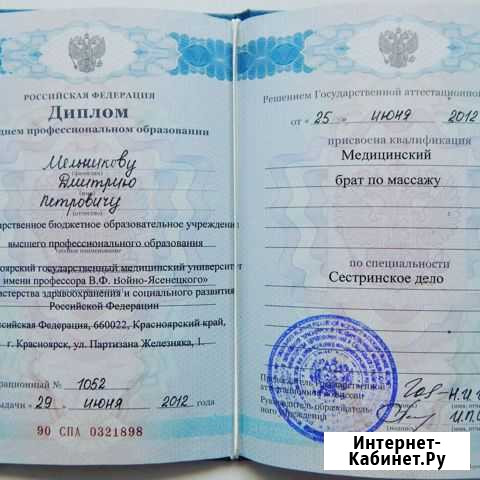 РОССИЙСКАЯ ФЕДЕРАЦИЯ
Диплом
нем профессиональном образовании
Мельникову
(фамилия)
Дмитрию
(имя)
Петровичу
(отчество)
арственное бюджетное образовательное учреждени
высшего профессионального образования
оярский государственный медицинский университет
имени профессора В.Ф. Войно-Ясенецкого»
истерства здравоохранения и социального развития
Российской Федерации
сийская Федерация, 660022, Красноярский край,
г. Красноярск, ул. Партизана Железняка, 1.
рационный № 1052
выдачи „ 29 „ июня 2012 года
90 СПА 0321898
Решением Государственной аттестационной
от « 25 » июня 2012
присвоена квалификация
Медицинский
брат по массажу
по специальности
Сестринское дело
Председатель Государственной
аттестационной комиссии
(подпись)
Руководитель образователь-
ного учреждения
(подпись)
Интернет-
Кабинет.Ру